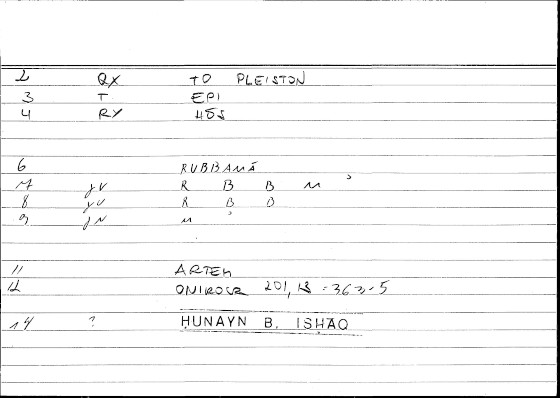 2 QX TO PLEISTON
3 T EPI
4 RX HŌS
6 RUBBAMĀ
7 JV R B B M ʾ
8 JV R B B
9 JN M ʾ
11 ARTEM
12 ONIROCR 201, 18 = 363, 5
14 ? ḤUNAYN B. ISḤAQ